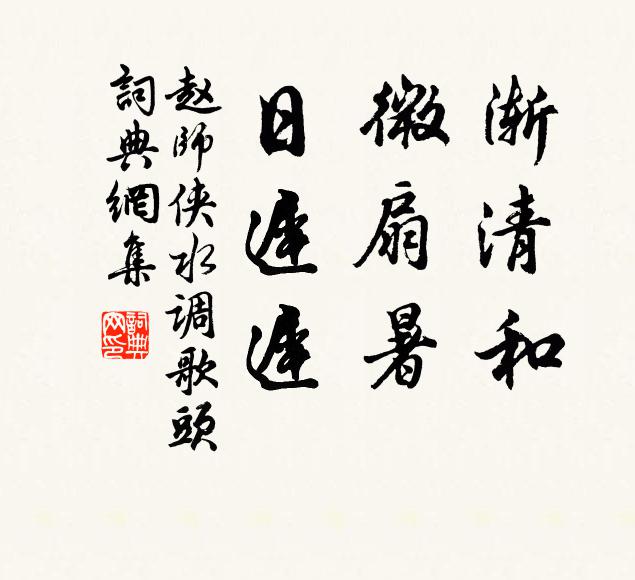 渐清和
微扇暑
日遲遲
赵师侠水调歌頭
詞典網集
詞典
网印